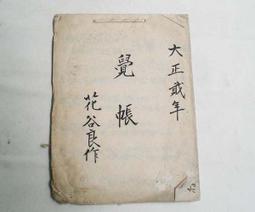 大正貳年
覺帳
花谷良作